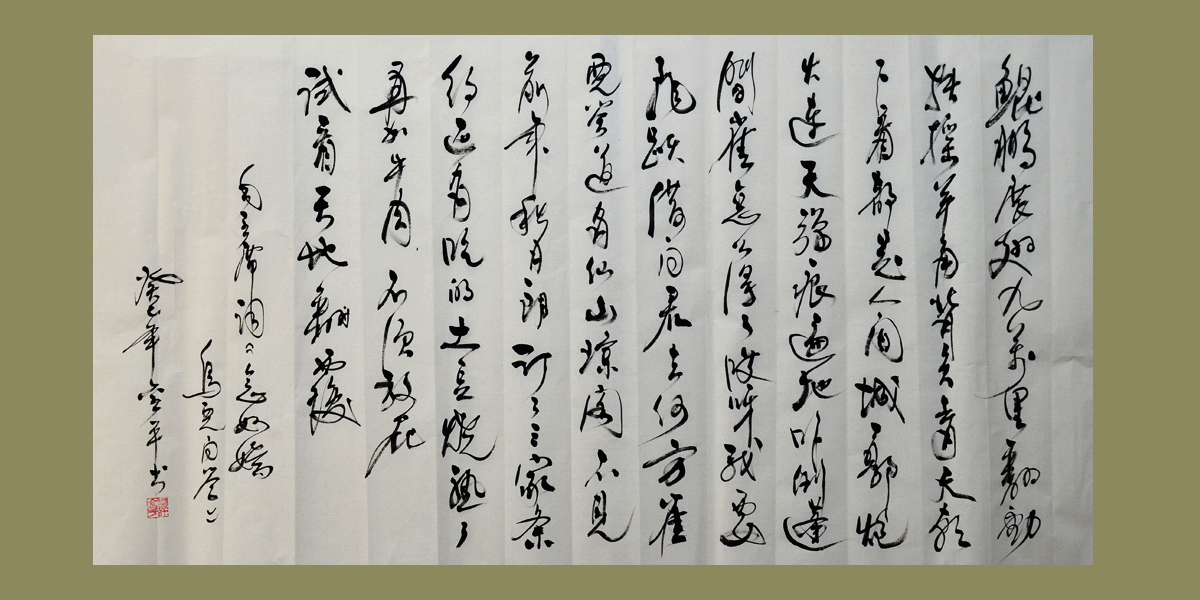 鲲鹏展翅九万里翻动
扶摇羊角背负青天朝
下看都是人间城郭炮
火连天弹痕遍地吓倒蓬
间雀怎么得了哎呀我要
飞跃借问君去何方雀
儿答道有仙山琼阁不见
前年秋月朗订了三家条
约还有吃的土豆烧熟了
再加牛肉不须放屁
试看天地翻覆
毛主席词《念奴娇
鸟儿问答》
癸巳年平书